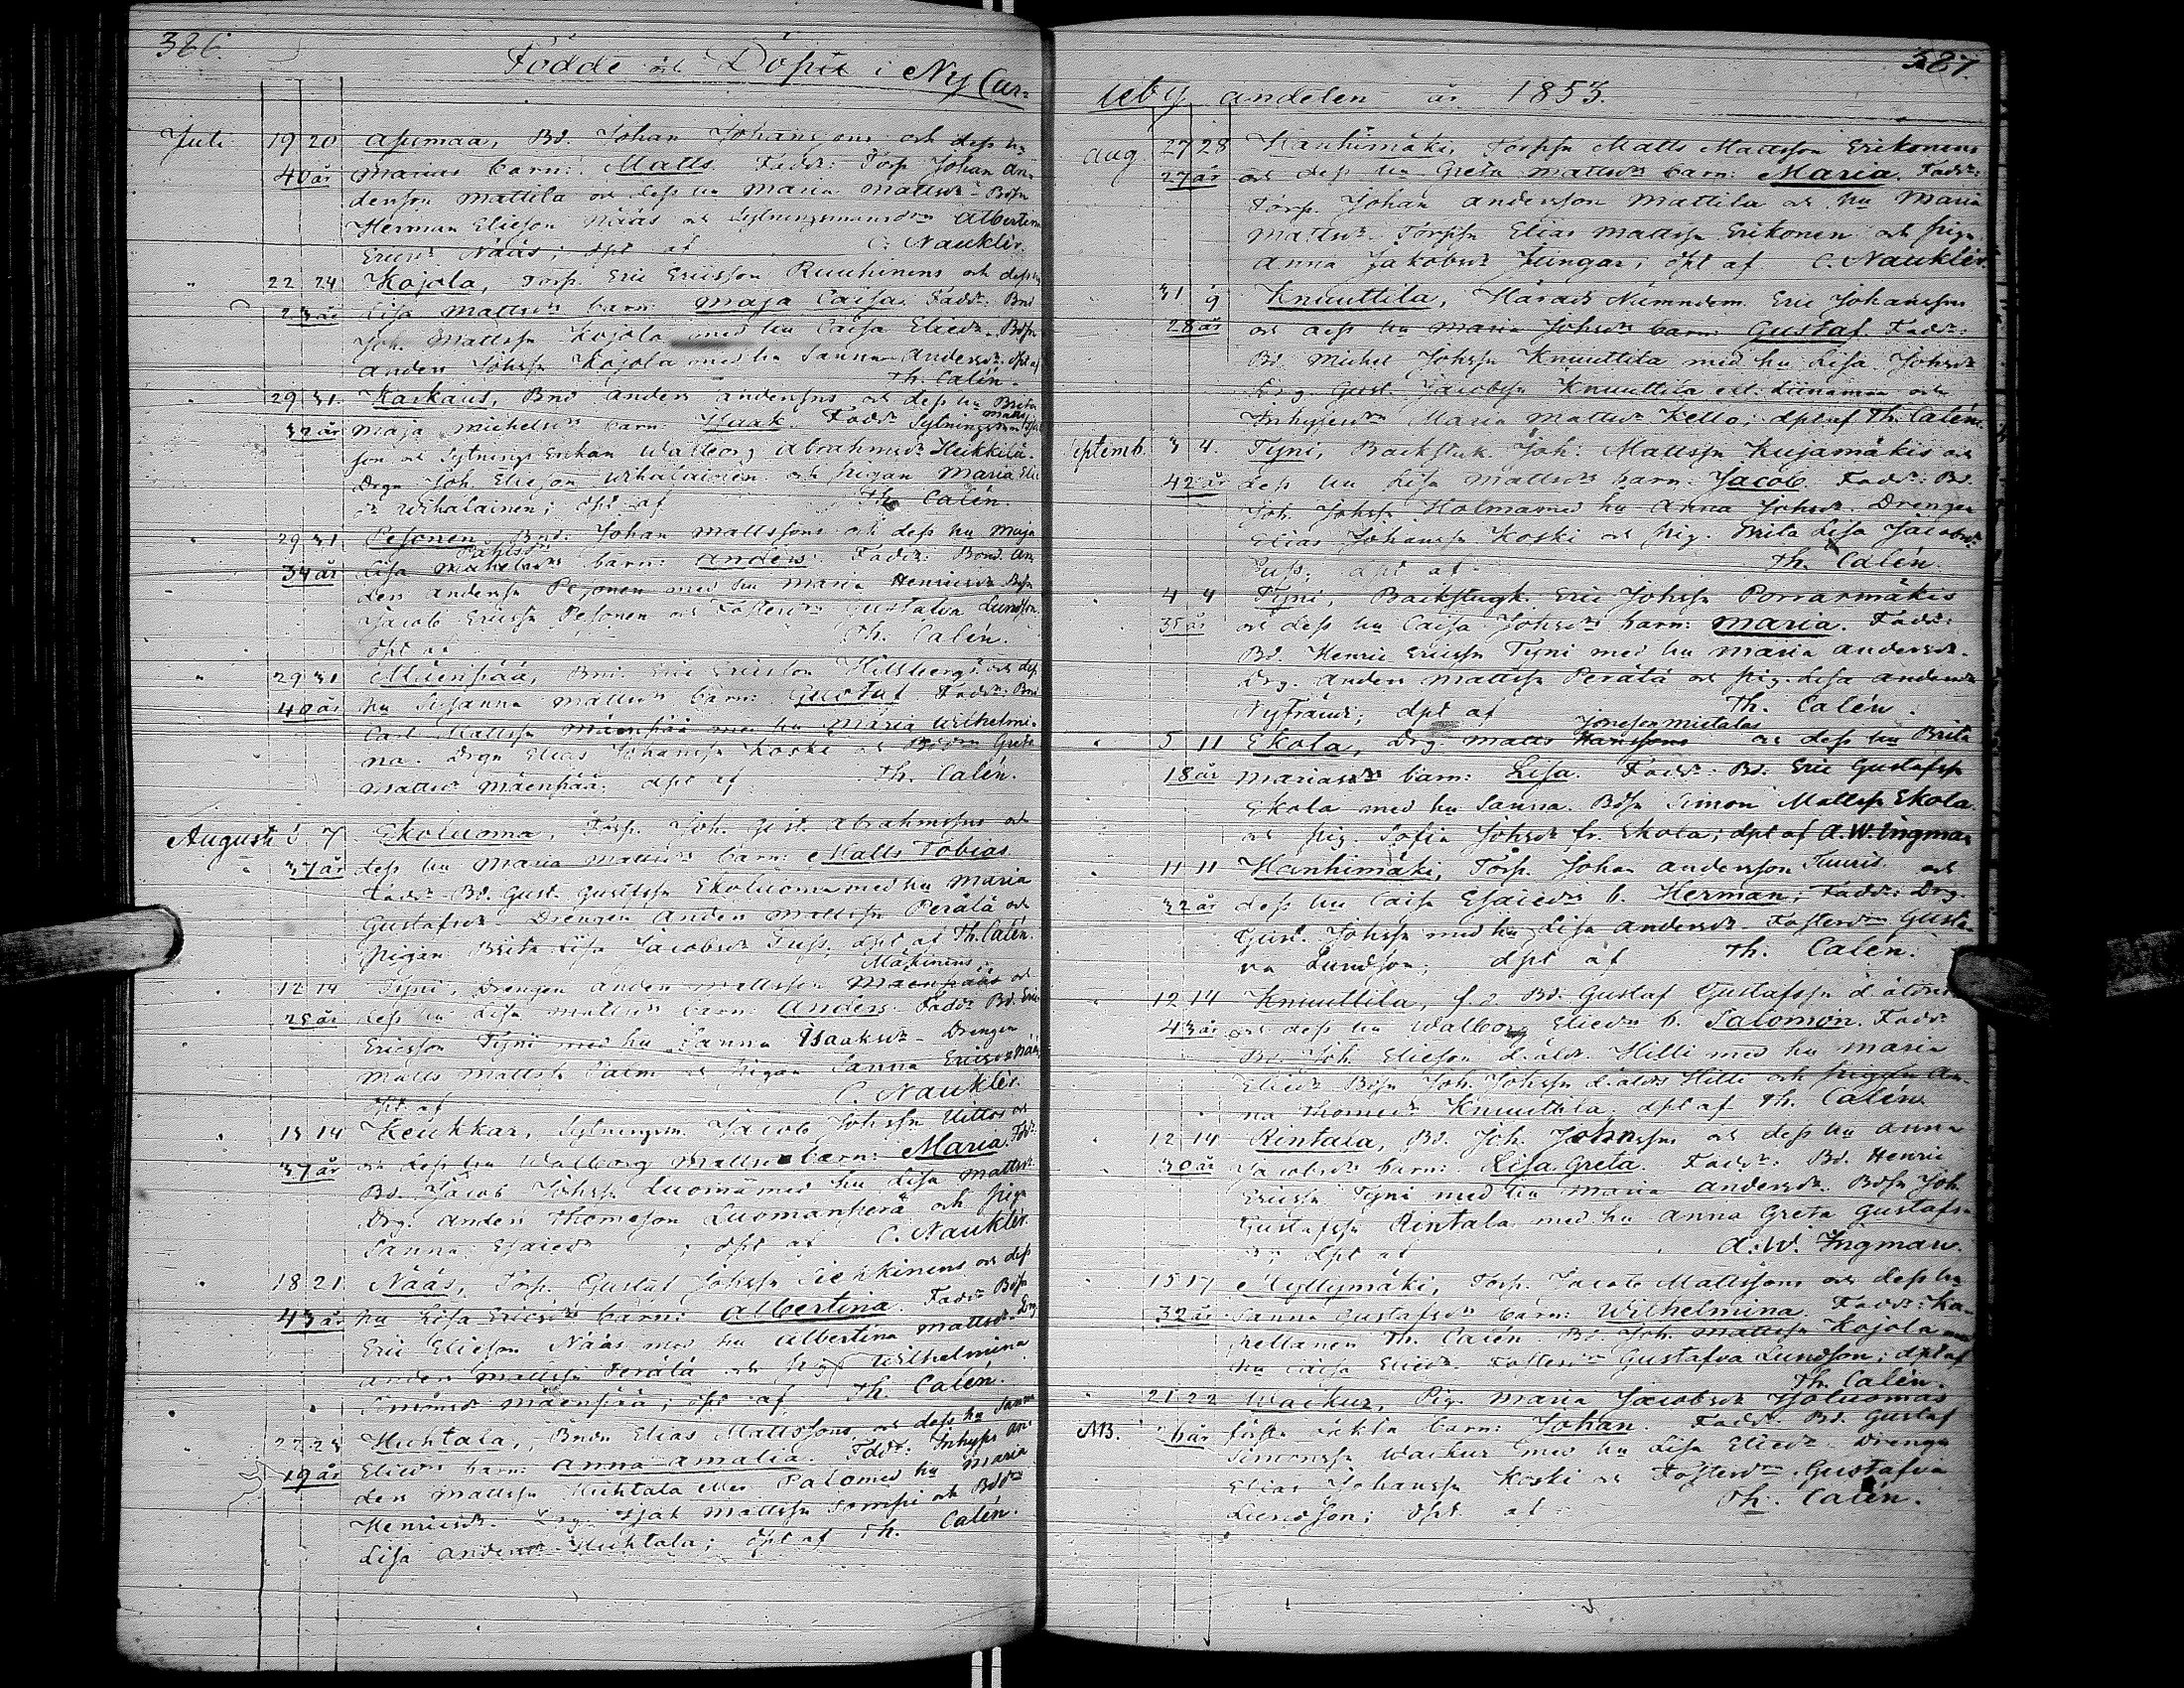 386.
Födde och Döpte i Ny Car-
Juli 19 20 Apumaa, Bd. Johan Johanssons och dess hu
40 år Marias barn: Matts. Fadd: Torp Johan An-
dersson Mattila och dess hu Maria Mattsdr. Bdsn
Herman Elieson Näås och Sytningsmansdrn Albertina
Ericsdr Näås; dpt af C. Nauklér.
22 24 Kojola, Torp. Eric Ericsson Ruuhinens och dess hu
23 år Lisa Mattsdrs barn: Maja Caisa. Fadd: Bnd
Joh. Mattsson Kojola med hu Caisa Eliedr. Bdsn
Anders Johsson Kojola med hu Sanna Andersdr. dpt af
Th. Calén.
29 31. Karkaus, Bnd Anders Andersons och dess hu Brita
32 år Maja Michelsdrs barn: Isaak. Fadd: Sytningsman
son och Sytnings Enkan Walborg Abrahmsdr Heikkilä.
Drgn Joh. Elieson Wihalainen och pigan Maria Elie
dr Wihalainen; dpt af Th. Calén.
29 31. Pesonen, Bnd. Johan Mattssons och dess hu Maja
34 år Lisa barn: Anders. Fadd: Bond. An-
ders Anderssn Pesonen med hu Maria Henricsdr Bdsn
Jacob Ericssn Pesonen och Fosterdrn Gustafva Lundson.
dpt af Th. Calén.
29 31 Mäenpää, Bnd. Eric Ericsson Hilsbergs och dess
40 år hu Susanna Mattsdrs barn: Gustaf. Fadd: Bnd
Carl Mattssn Mäenpää med hu Maria Wilhelmi-
na. Drgn Elias Johanssn Koski och Bddrn Greta
Mattsdr Mäenpää, dpt af Th. Calén.
Augusti 5 7 Ekoluoma, Torp. Joh. Gust. Abrahmssons och
37 år dess hu Maria Mattsdrs barn: Matts Tobias
Fadd: Bd. Gust. Gustfssn Ekoluoma med hu Maria
Gustafsdr. Drengen Anders Mattssn Perälä och
pigan Brita Lisa Jacobsdr Fuss. dpt af Th. Calén.
Mäkinens
12 14 Tyni, Drengen Anders Mattsson Mäenpääs och
25 år dess hu Lisa Mattsdrs barn: Anders. Fadd: Bd. Eric
Ericsson Tyni med hu Sanna Isaaksdr. Drengen
Matts Mattssn Palm och pigan Sanna Ericsdr Näås
dpt af C. Nauklér.
13 14 Keukkar, Sytningsm. Jacob Johssn Uittos och
37 år och dess hu Walborg Mattsdrs barn: Maria. Fadd:
Bd. Jacob Johssn Luoma med hu Lisa Mattsdr.
Drg. Anders Thomeson Luomanperä och pig.
Sanna Esaiedr ; dpt af C. Nauklér.
18 21. Näås, Torp. Gustaf Johssn Siekkinens och dess
43 år hu Lisa Ericsdrs barn: Albertina. Fadd: Bdsn
Eric Elieson Näås med hu Albertina Mattsdr. Drg
Anders Mattssn Perälä och pig Wilhelmina
Simonsdr Mäenpää; dpt af Th. Calén.
22 23 Huhtala, Bndn Elias Mattssons och dess hu Sanna
19 år Eliedrs barn: Anna Amalia. Fadd: Inhyses An-
ders Mattssn Huhtala eller Palo med hu Maria
Henricsdr. Drg. Isak Mattssn Somppi och Bddrn
Lisa Andersdr Huhtala; dpt af Th. Calén.
387.
leby andelen år 1853.
Aug. 27 28 Hanhimäki, Torpsn Matts Mattsson Erikonens
27 år och dess hu Greta Mattsdrs barn: Maria. Fadd:
Torp. Johan Andersson Mattila och hu Maria
Mattsdr. Torpsn Elias Mattssn Erikonen och pign
Anna Jakobsdr Jungar; dpt af C. Nauklér.
31 9 Knuuttila, Härads Nämndem. Eric Johanssons
28 år och dess hu Maria Johsdrs barn: Gustaf. Fadd:
Bd. Michel Johssn Knuuttila med hu Lisa Johsdr
Drg. Gust. Jacobssn Knuuttila ell. Liinamaa och
Inhysesdrn Maria Mattsdr Kello; dpt af Th. Calén.
Septemb. 3 4. Tyni, Backstuk. Joh. Mattssn Kujamäkis och
42 år dess hu Lisa Mattsdrs barn: Jacob. Fadd: Bd.
Joh. Johssn Holma med hu Anna Johsdr. Drengen
Elias Johanssn Koski och pig. Brita Lisa Jacobsdr
Fuss; dpt af Th. Calén.
4 4 Tyni, Backstugk. Eric Johssn Porrarmäkis
35 år och dess hu Caisa Johsdrs barn: Maria. Fadd:
Bd. Henric Ericssn Tyni med hu Maria Andersdr.
Drg. Anders Mattssn Perälä och pig. Lisa Andersdr
Nyfränds; dpt af Th. Calén.
Joneson Mietalas
5 11 Ekola, Drg. Matts Hanssons och dess hu Brita
18 år Mariasdrs barn: Lisa. Fadd: Bd. Eric Gustafssn
Ekola med hu Sanna. Bdsn Simon Mattssn Ekola
och pig. Sofia Johsdr fr. Ekola; dpt af A. W. Ingman
11 11 Hanhimäki, Torp. Johan Andersson Tuuris och
32 år dess hu Caisa Esaiedrs b. Herman; Fadd: Drg.
Gust. Johssn med hu Lisa Andersdr. Fosterdrn Gusta-
va Lundson; dpt af Th. Calén.
12 14 Knuuttila, f.d. Bd. Gustaf Gustafssn d. äldres
43 år och dess hu Walborg Eliedrs b. Salomon. Fadd:
Bd. Joh. Elieson d. äldr. Hilli med hu Maria
Eliedr. Bdsn Joh. Johssn d. äldrs Hilli och pigan An-
na Thomedr Knuuttila. dpt af Th. Calén.
12 14 Rintala, Bd. Joh. Johnssons och dess hu Anna
30 år Jacobsdrs barn: Lisa Greta. Fadd: Bd. Henric
Ericssn Tyni med hu Maria Andersdr. Bdsn Joh.
Gustafssn Rintala med hu Anna Greta Gustafs-
dr; dpt af A. W. Ingman.
15 17 Myllymäki, Torp. Jacob Mattssons och dess hu
32 år Sanna Gustafsdrs barn: Wilhelmina. Fadd: Ka-
pellanen Th. Calén. Bd. Joh. Mattssn Kojola med
hu Caisa Eliedr. Fosterdrn Gustafva Lundson; dpt af
Th. Calén.
21 22 Waikur, Pig. Maria Jacobsdr Isoluomas
NB. 26 år första oäkta barn: Johan. Fadd: Bd. Gustaf
Simonssn Waikur med hu Lisa Eliedr. Drengn
Elias Johanssn Koski och Fosterdrn Gustafva
Lundson; dpt af Th. Calén.